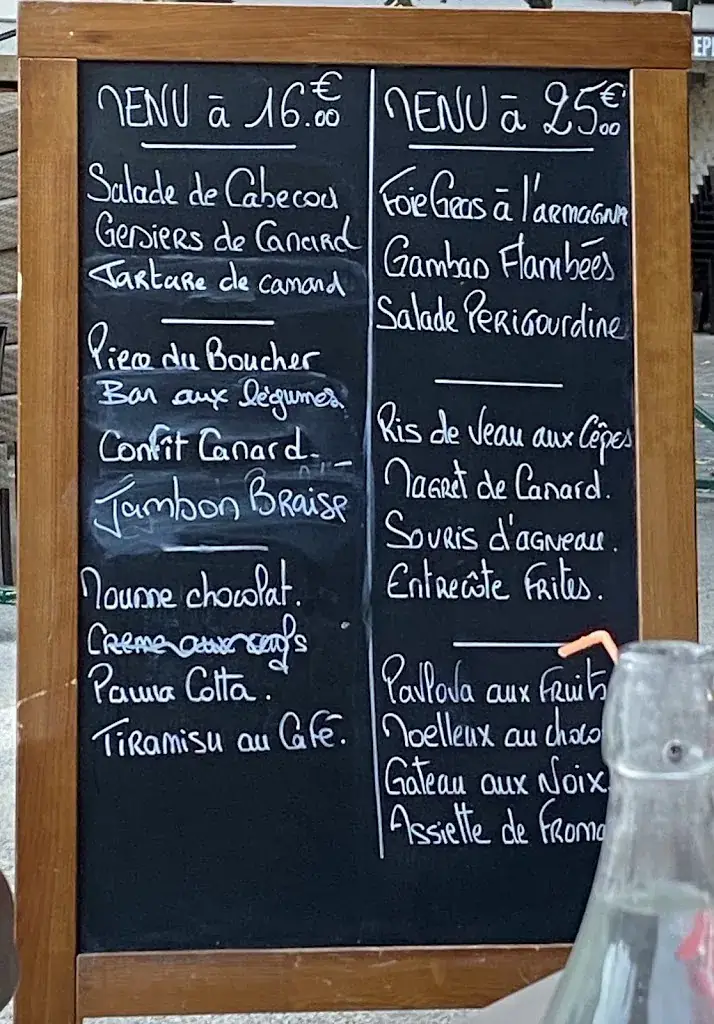 MENU à 16.€00
Salade de Cabecou
Gesiers de Canard
Tartare de canard
Piece du Boucher
Bar aux légumes
Confit Canard.
Jambon Braise
Mousse chocolat.
Creme aux oeufs
Panna Cotta.
Tiramisu au Café.
MENU à 25€.00
Foie Gras à l'armagnac
Gambas Flambées
Salade Périgourdine
Ris de Veau aux Cêpes
Magret de Canard.
Souris d'agneau.
Entrecôte Frites.
Pavlova aux Fruits
Moelleux au choco
Gateau aux Noix
Assiette de Froma
EPI